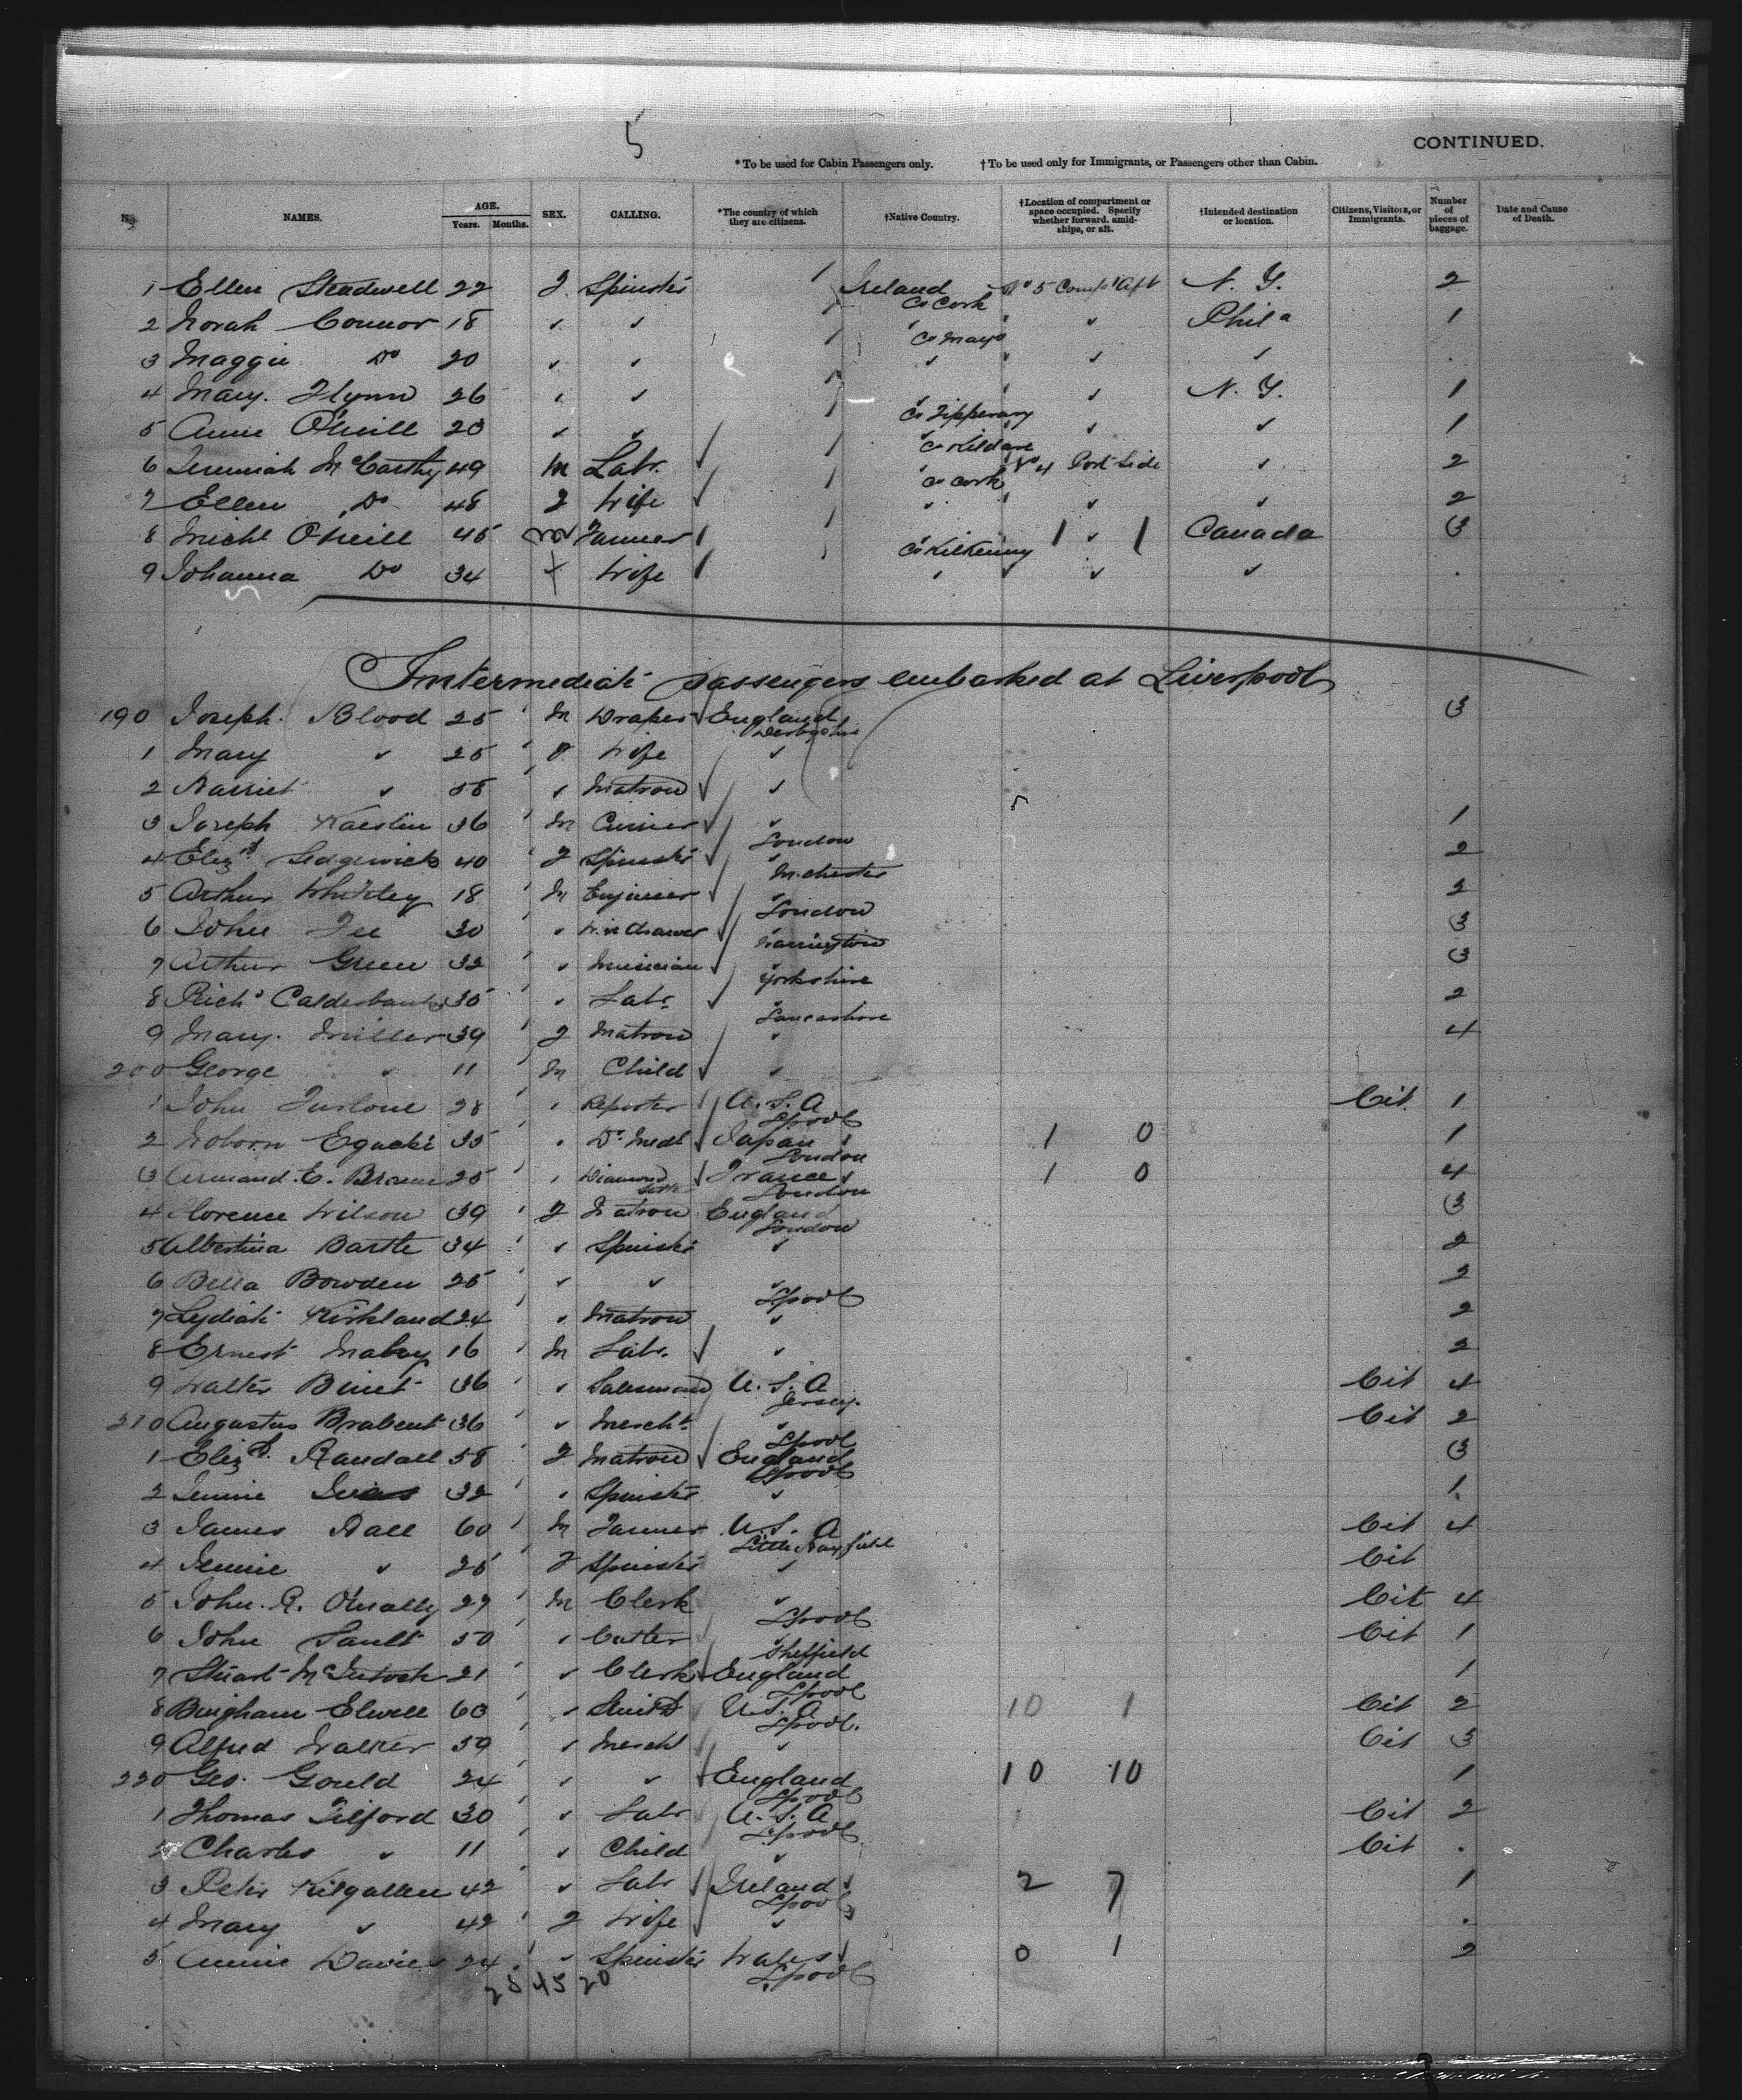 5
CONTINUED.
* To be used for Cabin Passengers only. † To be used only for Immigrants, or Passengers other than Cabin.
No. NAMES. AGE. Years. Months. SEX. CALLING. *The country of which they are citizens. †Native Country. †Location of compartment or space occupied. Specify whether forward, amidships, or aft. †Intended destination or location. Citizens, Visitors, or Immigrants. Number of pieces of baggage. Date and Cause of Death.
1 Ellen 22 F Spinster Ireland Co Cork No 5 Compt Aft N. Y. 2
2 Norah Connor 18 " " Co Mayo " " Phila 1
3 Maggie Do 20 " " " " " "
4 Mary Flynn 26 " " Co Tipperary " " N. Y. 1
5 Annie O'Neill 20 " " Co Kildare " " 1
6 Jeremiah McCarthy 49 M Labr. Co Cork No 4 Port Side " 2
7 Ellen Do 48 F Wife " " " " 2
8 Michl O'Neill 45 M Farmer Co Kilkenny 1 " 1 Canada 3
9 Johanna Do 34 Wife " " " "
Intermediate passengers embarked at Liverpool
190 Joseph Blood 25 M Draper England Derbyshire 3
1 Mary " 25 F Wife "
2 Harriet " 58 " Matron "
3 Joseph 36 M Currier " London 1
4 Elizth Sedgewick 40 F Spinster " Mchester 2
5 Arthur Whiteley 18 M Engineer " London 2
6 John Fee 30 " " Warrington 3
7 Arthur Green 32 " Musician " Yorkshire 3
8 Richd Calderbank 35 " Labr " Lancashire 2
9 Mary Miller 39 F Matron " 4
200 George " 11 M Child "
1 John 28 " Reporter U.S.A Lpool Cit 1
2 35 " Japan London 1 0 1
3 Armand E. 25 " Diamond France London 1 0 4
4 Florence Wilson 39 F Matron England London 3
5 Albertina 34 " Spinster " 2
6 Bella Bowden 25 " " " Lpool 2
7 Kirkland 24 " Matron " 2
8 Ernest 16 M Labr. " 2
9 Walter Binet 36 " Salesman U.S.A Jersey Cit 4
210 Augustus Brabent 36 " Mercht " Lpool Cit 2
1 Elizth Randall 58 F Matron England Lpool 3
2 Jennie 32 " Spinster " 1
3 James Hall 60 M Farmer U.S.A Cit 4
4 Jennie " 25 F Spinster " Cit
5 John R. O'Mally 27 M Clerk " Lpool Cit 4
6 John Sault 50 " Cutler " Sheffield Cit 1
7 Stuart McIntosh 21 " Clerk England Lpool 1
8 Bingham Elwell 60 " Smith U.S.A Lpool 10 1 Cit 2
9 Alfred Walker 59 " Mercht " Cit 3
220 Geo. Gould 24 " " England Lpool 10 10 1
1 Thomas Tilford 30 " Labr U.S.A Lpool Cit 2
2 Charles " 11 " Child " Cit
3 Peter Kilgallen 42 " Labr Ireland Lpool 2 7 1
4 Mary " 42 F Wife "
5 Annie Davies 24 " Spinster Wales Lpool 0 1 2
25 45 20